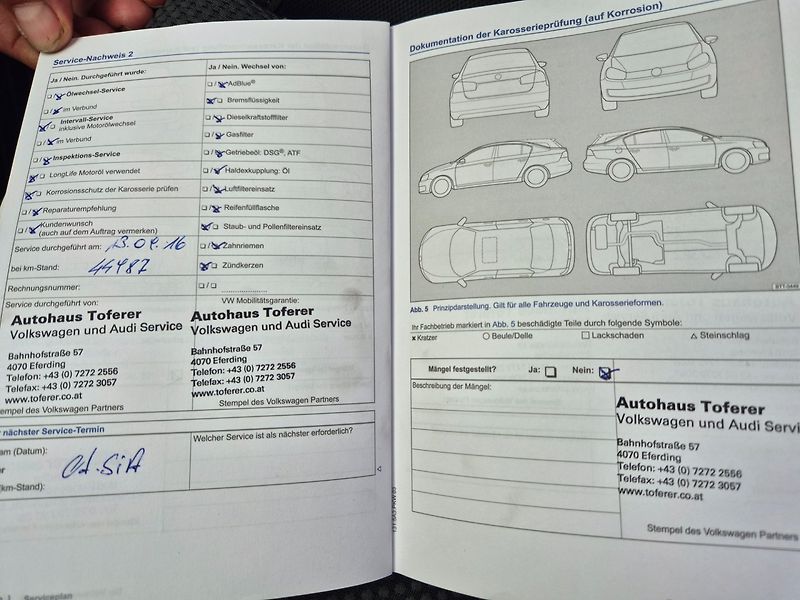 Service-Nachweis 2
Ja / Nein. Durchgeführt wurde:
Ölwechsel-Service
im Verbund
Intervall-Service
inklusive Motorölwechsel
im Verbund
Inspektions-Service
LongLife Motoröl verwendet
Korrosionsschutz der Karosserie prüfen
Reparaturempfehlung
Kundenwunsch
(auch auf dem Auftrag vermerken)
Service durchgeführt am:
bei km-Stand: 44987
Rechnungsnummer:
Service durchgeführt von:
Autohaus Toferer
Volkswagen und Audi Service
Bahnhofstraße 57
4070 Eferding
Telefon: +43 (0) 7272 2556
Telefax: +43 (0) 7272 3057
www.toferer.co.at
Stempel des Volkswagen Partners
Ja / Nein. Wechsel von:
AdBlue®
Bremsflüssigkeit
Dieselkraftstofffilter
Gasfilter
Getriebeöl: DSG®, ATF
Haldexkupplung: Öl
Luftfiltereinsatz
Reifenfüllflasche
Staub- und Pollenfiltereinsatz
Zahnriemen
Zündkerzen
VW Mobilitätsgarantie:
Autohaus Toferer
Volkswagen und Audi Service
Bahnhofstraße 57
4070 Eferding
Telefon: +43 (0) 7272 2556
Telefax: +43 (0) 7272 3057
www.toferer.co.at
Stempel des Volkswagen Partners
nächster Service-Termin
am (Datum):
km-Stand):
Welcher Service ist als nächster erforderlich?
Serviceplan
Dokumentation der Karosserieprüfung (auf Korrosion)
Abb. 5 Prinzipdarstellung. Gilt für alle Fahrzeuge und Karosserieformen.
Ihr Fachbetrieb markiert in Abb. 5 beschädigte Teile durch folgende Symbole:
x Kratzer
Beule/Delle
Lackschaden
Steinschlag
Mängel festgestellt? Ja: Nein:
Beschreibung der Mängel:
Autohaus Toferer
Volkswagen und Audi Servi
Bahnhofstraße 57
4070 Eferding
Telefon: +43 (0) 7272 2556
Telefax: +43 (0) 7272 3057
www.toferer.co.at
Stempel des Volkswagen Partners